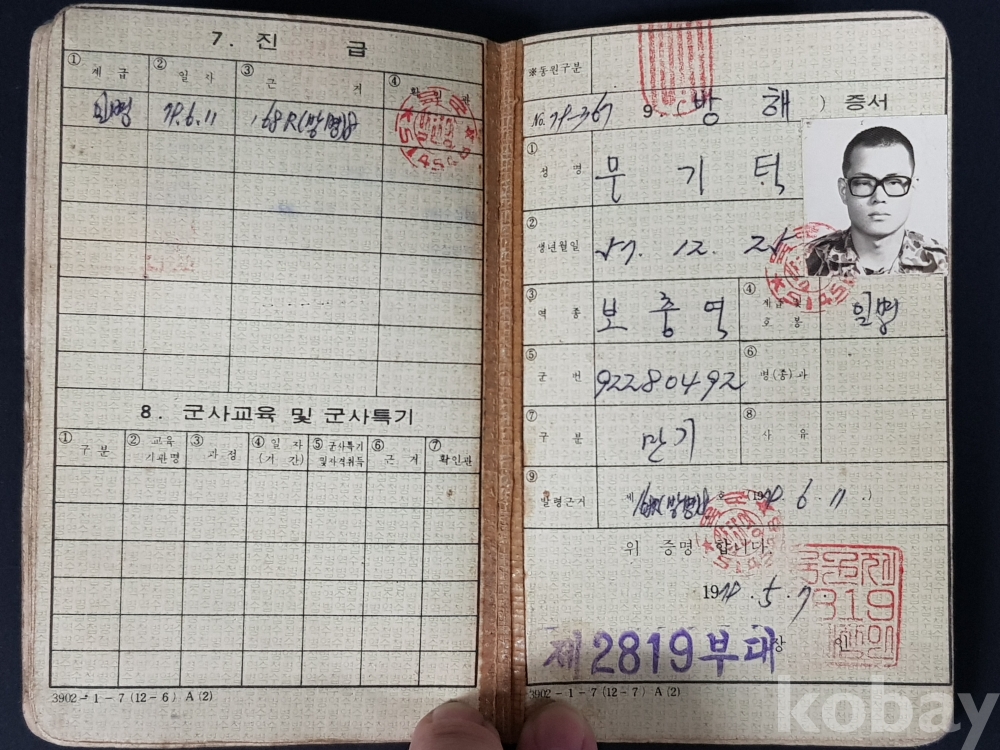 7. 진 급
① 계 급 ② 일 자 ③ 근 거 ④ 확 인 관
일병 79.6.11
8. 군사교육 및 군사특기
① 구 분 ② 교육기관명 ③ 과 정 ④ 일 자 (기 간) ⑤ 군사특기 및 자격취득 ⑥ 근 거 ⑦ 확인관
3902-1-7 (12-6) A (2)
※동원구분
No. 79-367 9. ( 방 해 ) 증서
① 성 명 문 기 덕
② 생년월일 57. 12. 25
③ 역 종 보 충 역 ④ 계급 및 호 봉 일병
⑤ 군 번 92280492 ⑥ 병(종)과
⑦ 구 분 만기 ⑧ 사 유
⑨ 발령근거 제 호 (1979. 6. 11.)
위 증명 합니다.
1979. 5. 7
제2819부대장 인
3902-1-7 (12-7) A (2)
kobay